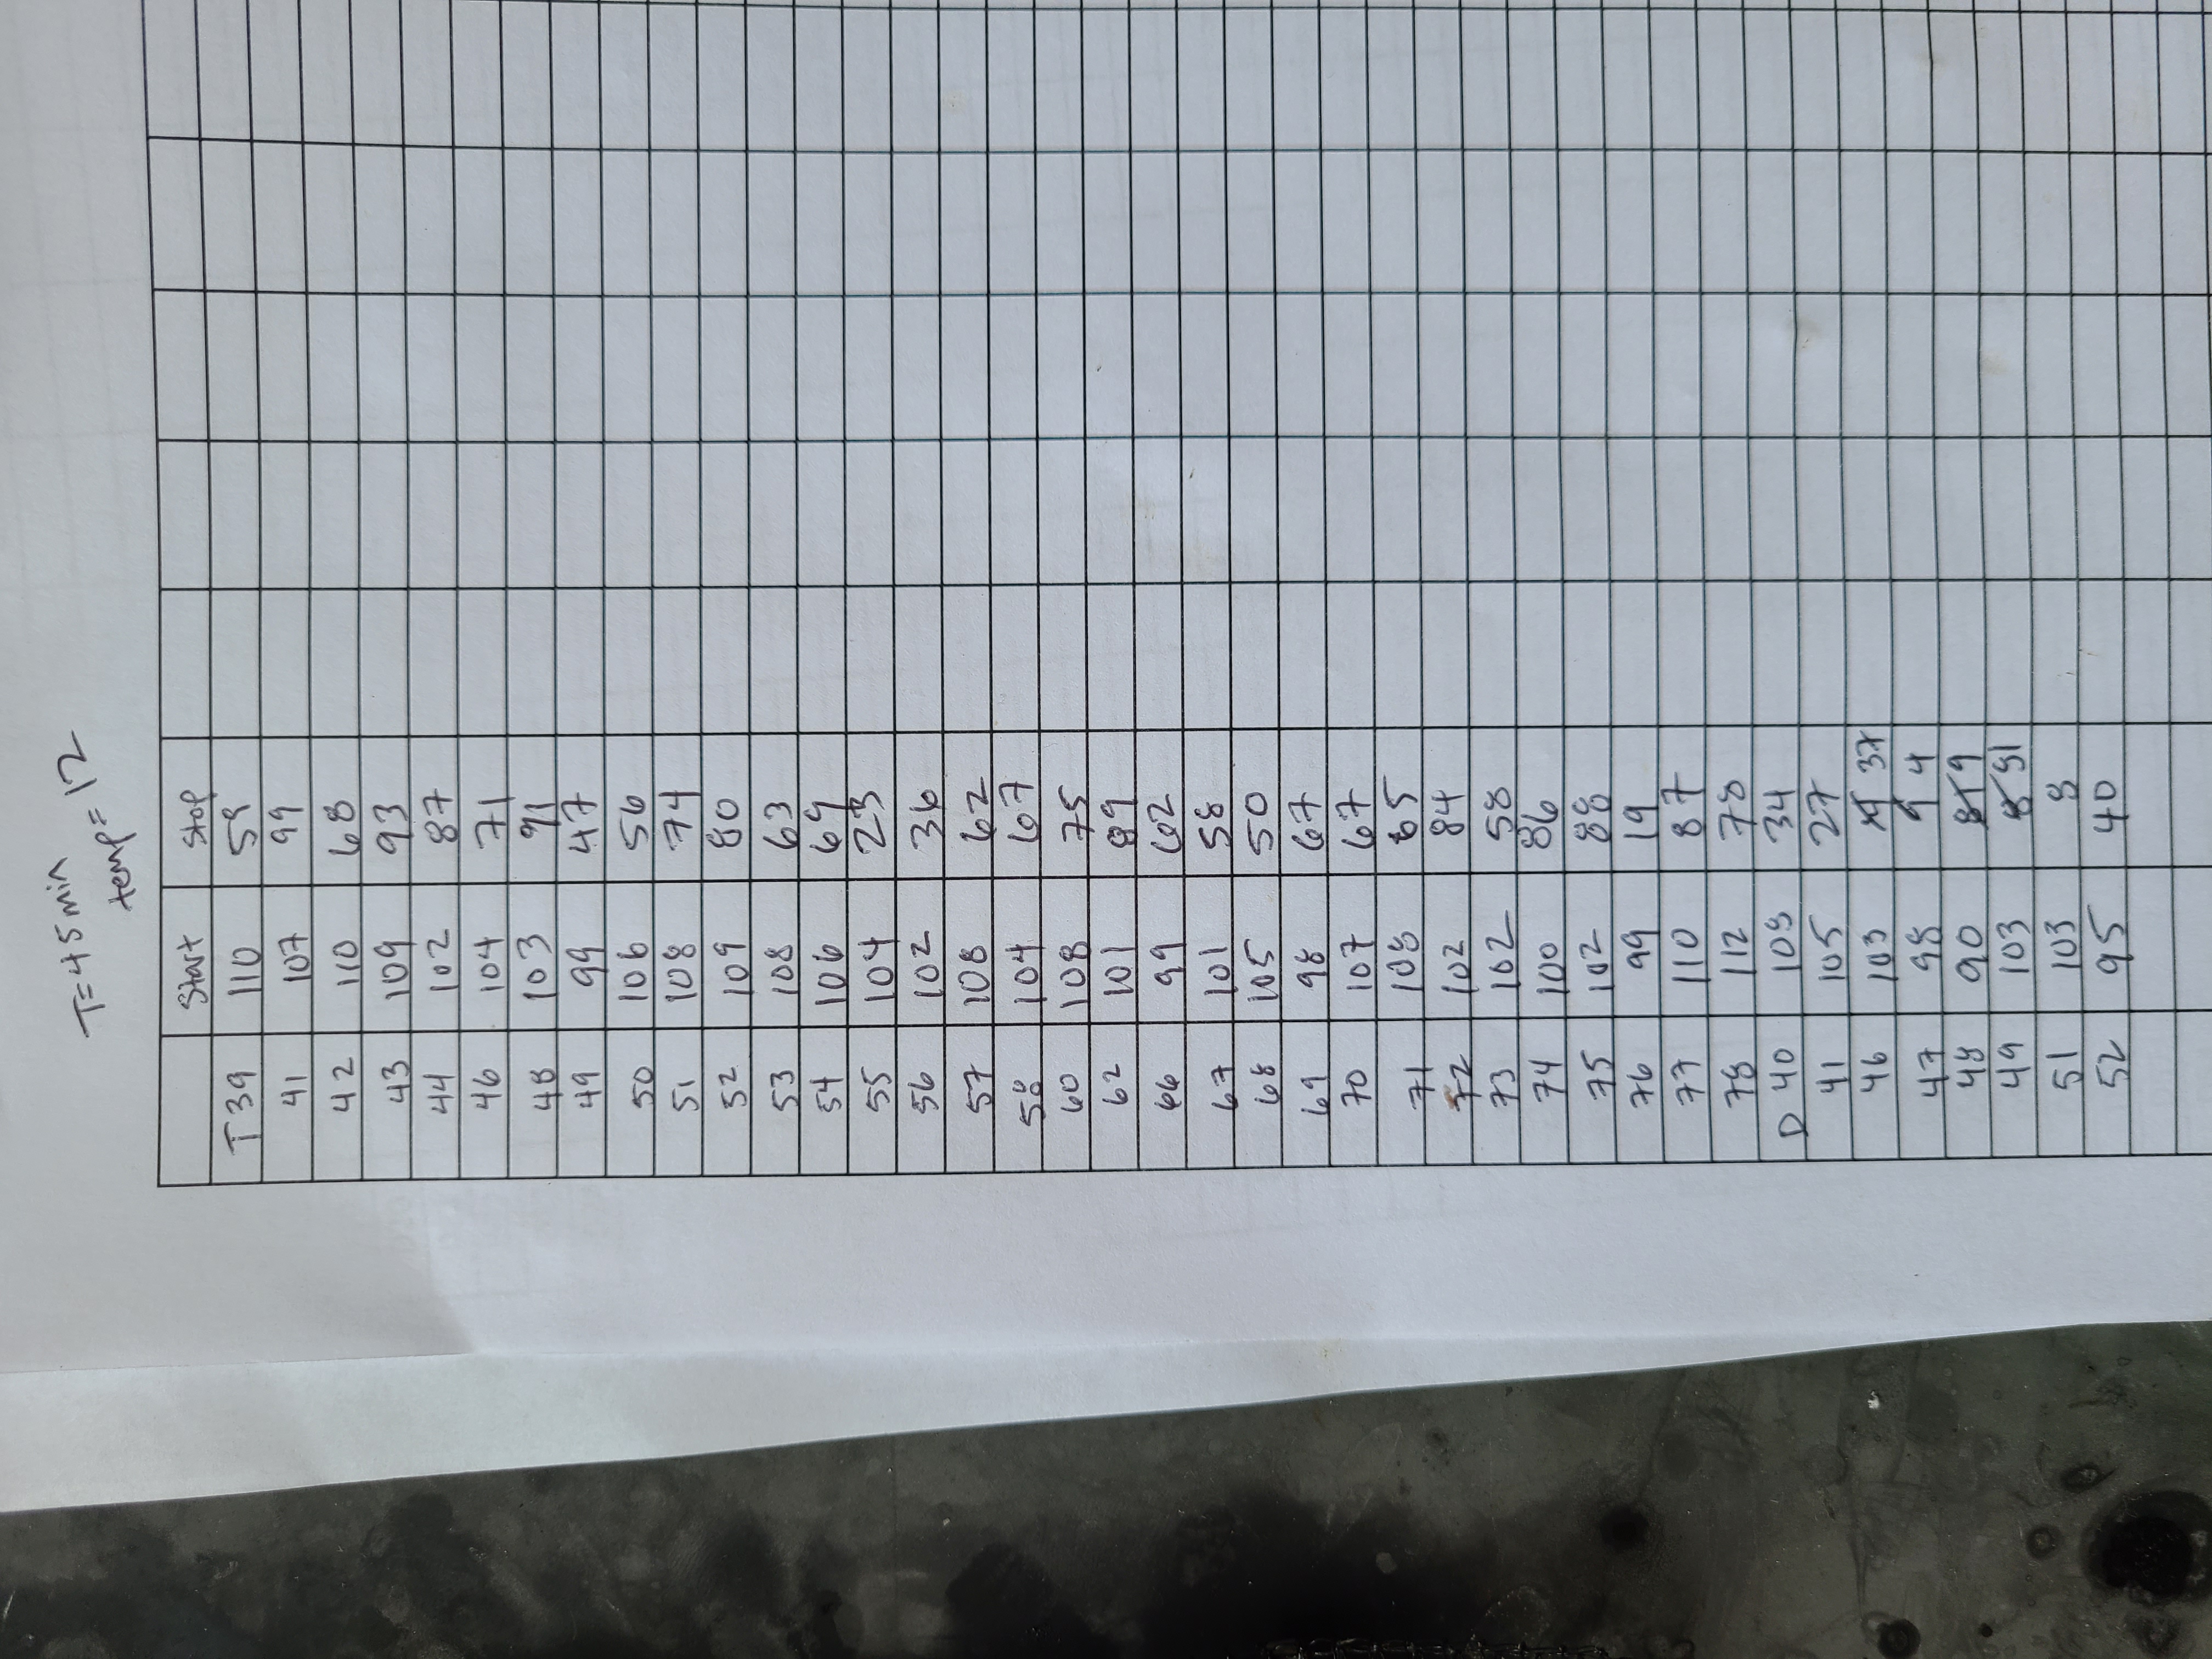 T=45min
temp=12
Start Stop
T 39 110 59
41 107 99
42 110 68
43 109 93
44 102 87
46 104 71
48 103 91
49 99 47
50 106 56
51 108 74
52 109 80
53 108 63
54 106 69
55 104 23
56 102 36
57 108 62
58 104 67
60 108 75
62 101 89
66 99 62
67 101 58
68 105 50
69 98 67
70 107 67
71 108 65
72 102 84
73 102 58
74 100 86
75 102 88
76 99 19
77 110 87
78 112 78
D 40 108 34
41 105 27
46 103 37
47 98 94
48 90 81 9
49 103 8 81
51 103 8
52 95 40